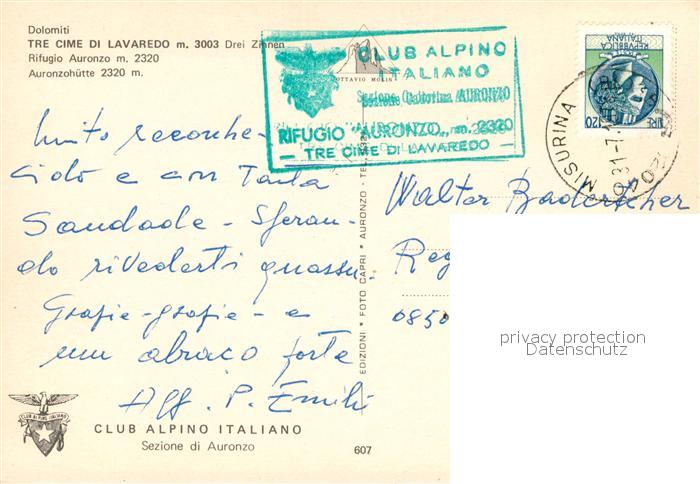 Dolomiti
TRE CIME DI LAVAREDO m. 3003 Drei Zinnen
Rifugio Auronzo m. 2320
Auronzohütte 2320 m.
OTTAVIO MOLIN
CLUB ALPINO
ITALIANO
Sezione Cadorina AURONZO
RIFUGIO "AURONZO„ m. 2320
— TRE CIME DI LAVAREDO —
REPUBBLICA
ITALIANA
LIRE 120
MISURINA
muito reconhe-
cido e con Tanta
Saudade - Speran-
do rivederti quassu.
Grazie - grazie - e
um abraço forte
Aff. P. Emilio
Walter Baderscher
Reg
0850
EDIZIONI * FOTO CAPRI * AURONZO - TEL.
privacy protection
Datenschutz
CLUB ALPINO ITALIANO
CLUB ALPINO ITALIANO
Sezione di Auronzo
607